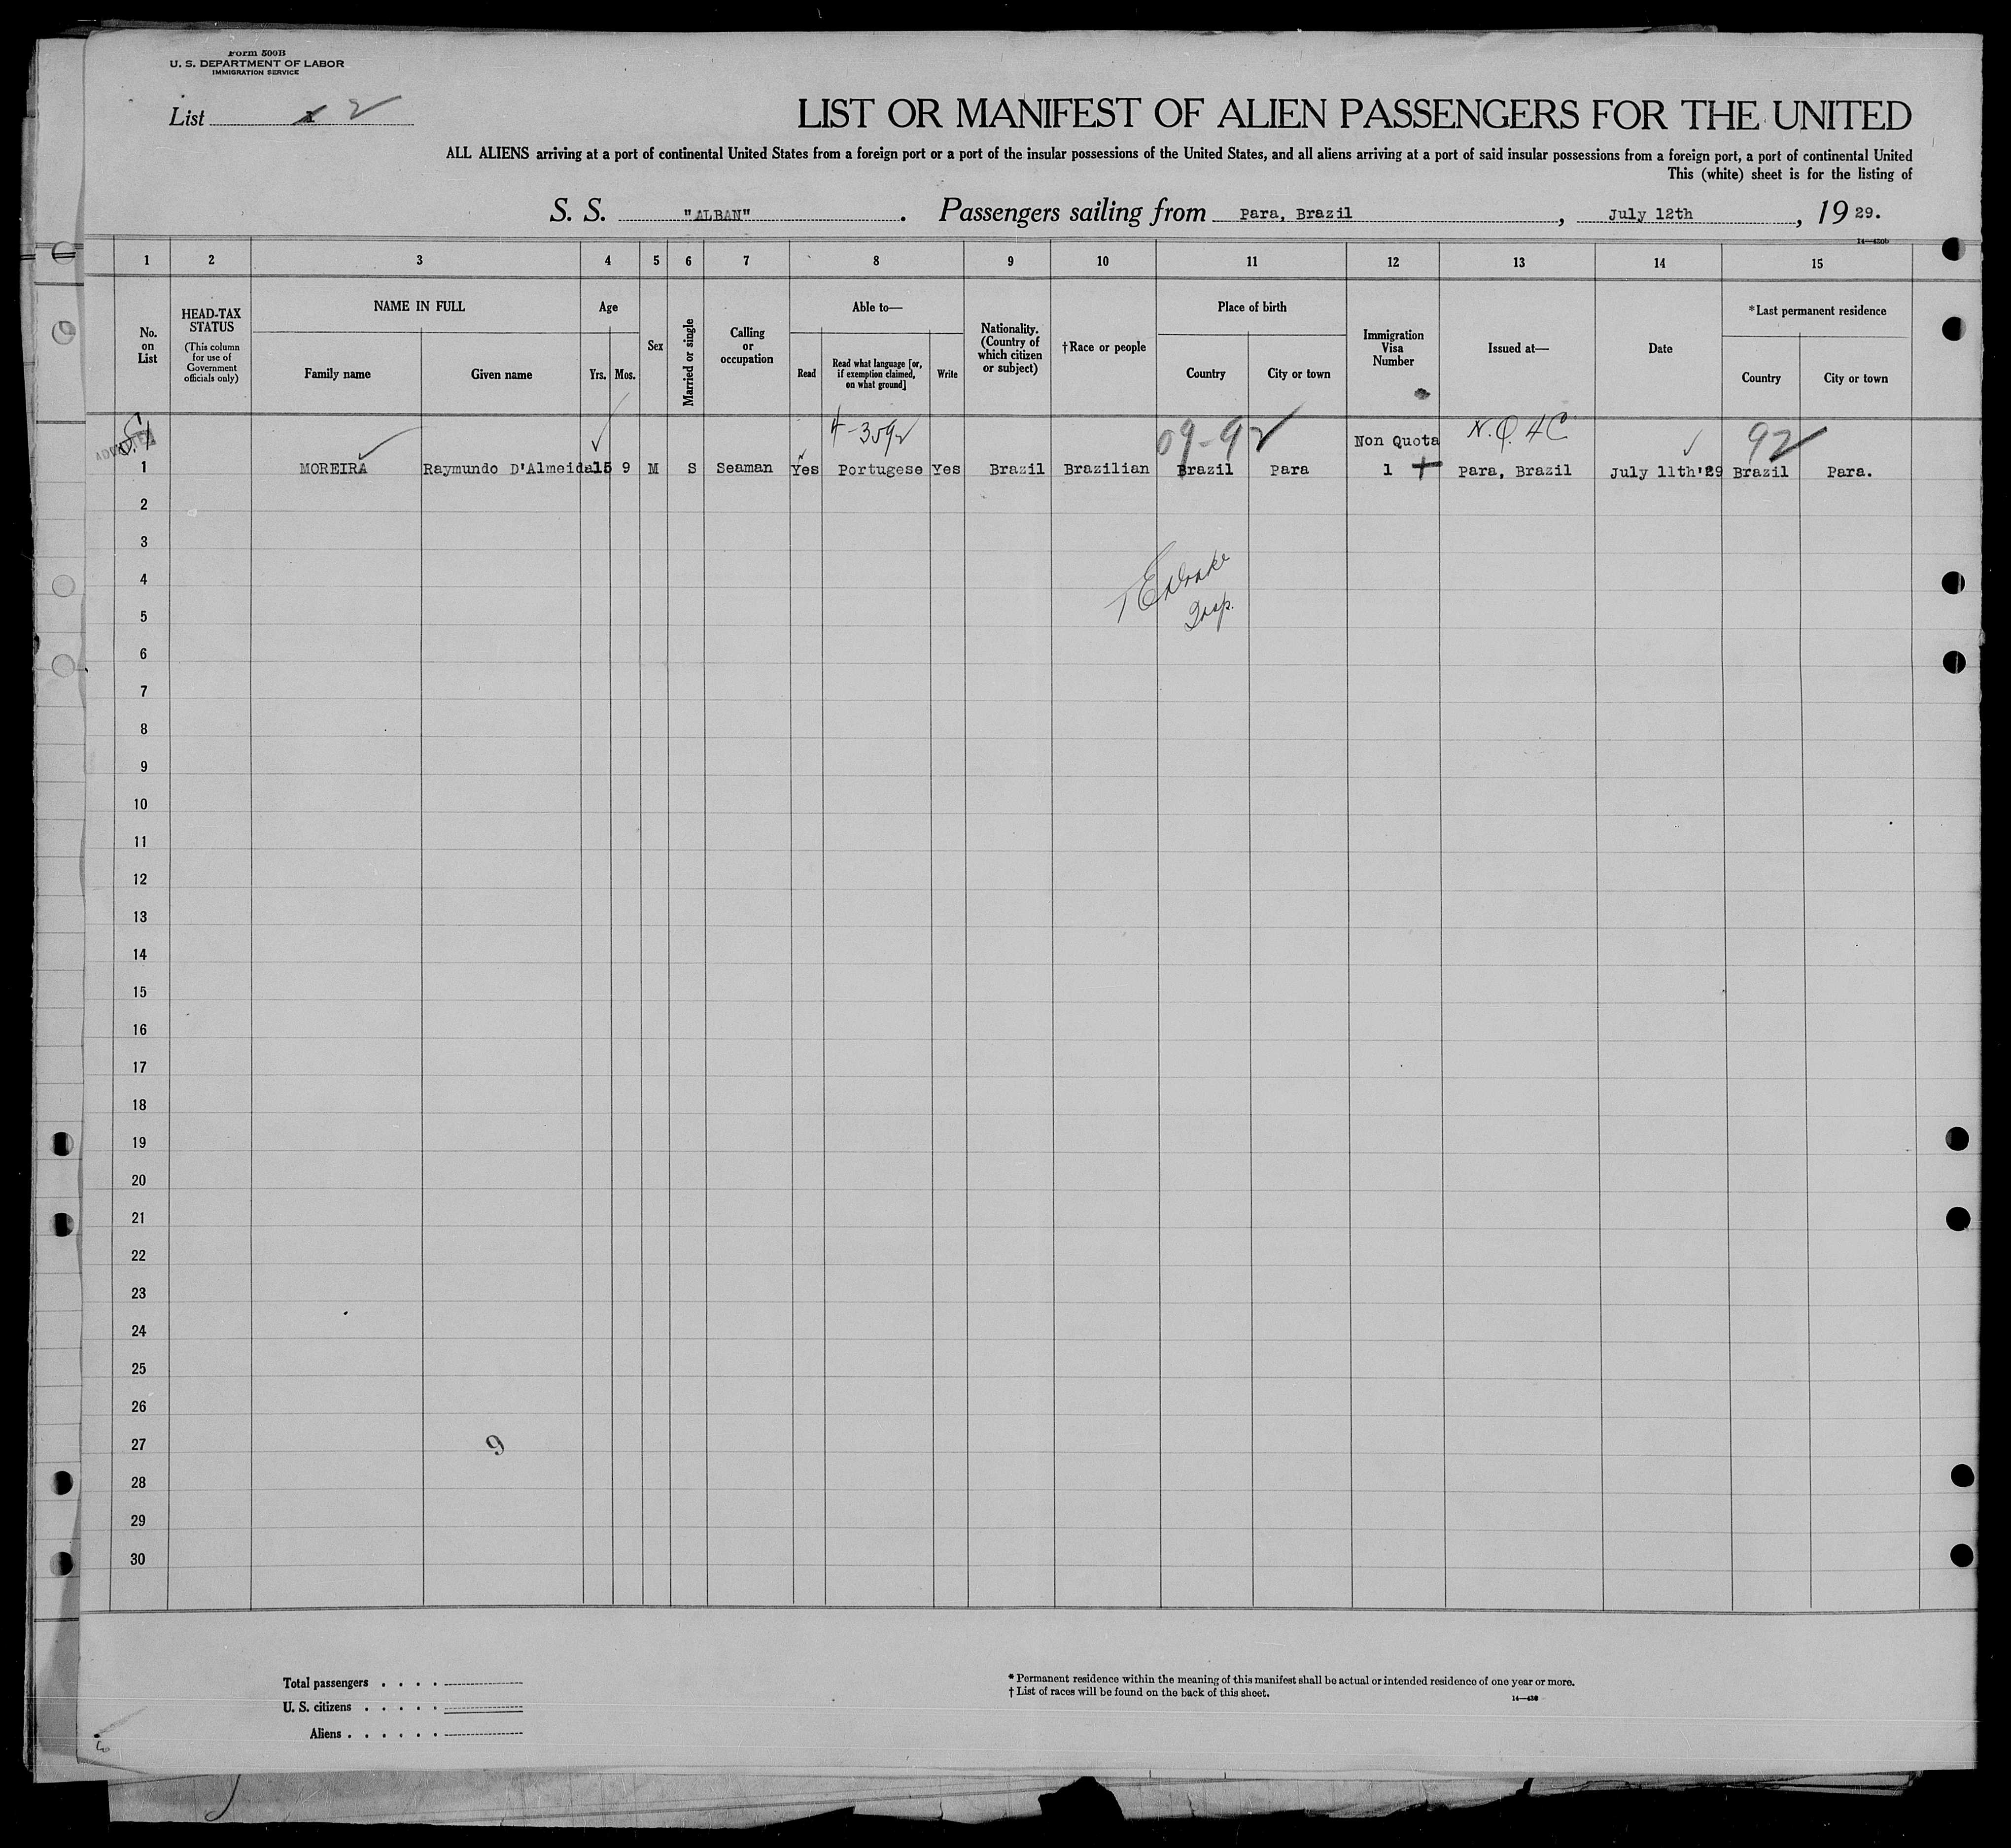 Form 500B
U. S. DEPARTMENT OF LABOR
IMMIGRATION SERVICE
List 2
LIST OR MANIFEST OF ALIEN PASSENGERS FOR THE UNITED
ALL ALIENS arriving at a port of continental United States from a foreign port or a port of the insular possessions of the United States, and all aliens arriving at a port of said insular possessions from a foreign port, a port of continental United
This (white) sheet is for the listing of
S. S. "ALBAN". Passengers sailing from Para, Brazil, July 12th, 1929.
1 2 3 4 5 6 7 8 9 10 11 12 13 14 15
No. on List
HEAD-TAX STATUS
(This column for use of Government officials only)
NAME IN FULL
Family name
Given name
Age
Yrs.
Mos.
Sex
Married or single
Calling or occupation
Able to—
Read
Read what language [or, if exemption claimed, on what ground]
Write
Nationality. (Country of which citizen or subject)
†Race or people
Place of birth
Country
City or town
Immigration Visa Number
Issued at—
Date
*Last permanent residence
Country
City or town
09-92 Non Quota N.Q. 4C 92
1 MOREIRA Raymundo D'Almeida 15 9 M S Seaman Yes Portugese Yes Brazil Brazilian Brazil Para 1 Para, Brazil July 11th'29 Brazil Para.
2
3
4
5
Insp.
6
7
8
9
10
11
12
13
14
15
16
17
18
19
20
21
22
23
24
25
26
27
9
28
29
30
Total passengers . . . .
U. S. citizens . . . . .
Aliens . . . . . .
* Permanent residence within the meaning of this manifest shall be actual or intended residence of one year or more.
† List of races will be found on the back of this sheet.